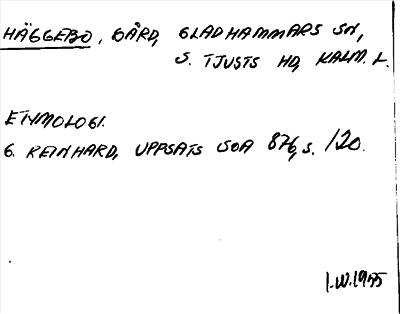 HÄGGEBO, GÅRD, GLADHAMMARS SN,
S. TJUSTS HD, KALM. L.
ETYMOLOGI.
G. REINHARD, UPPSATS SOA 876, S. 120.
I.W. 1955